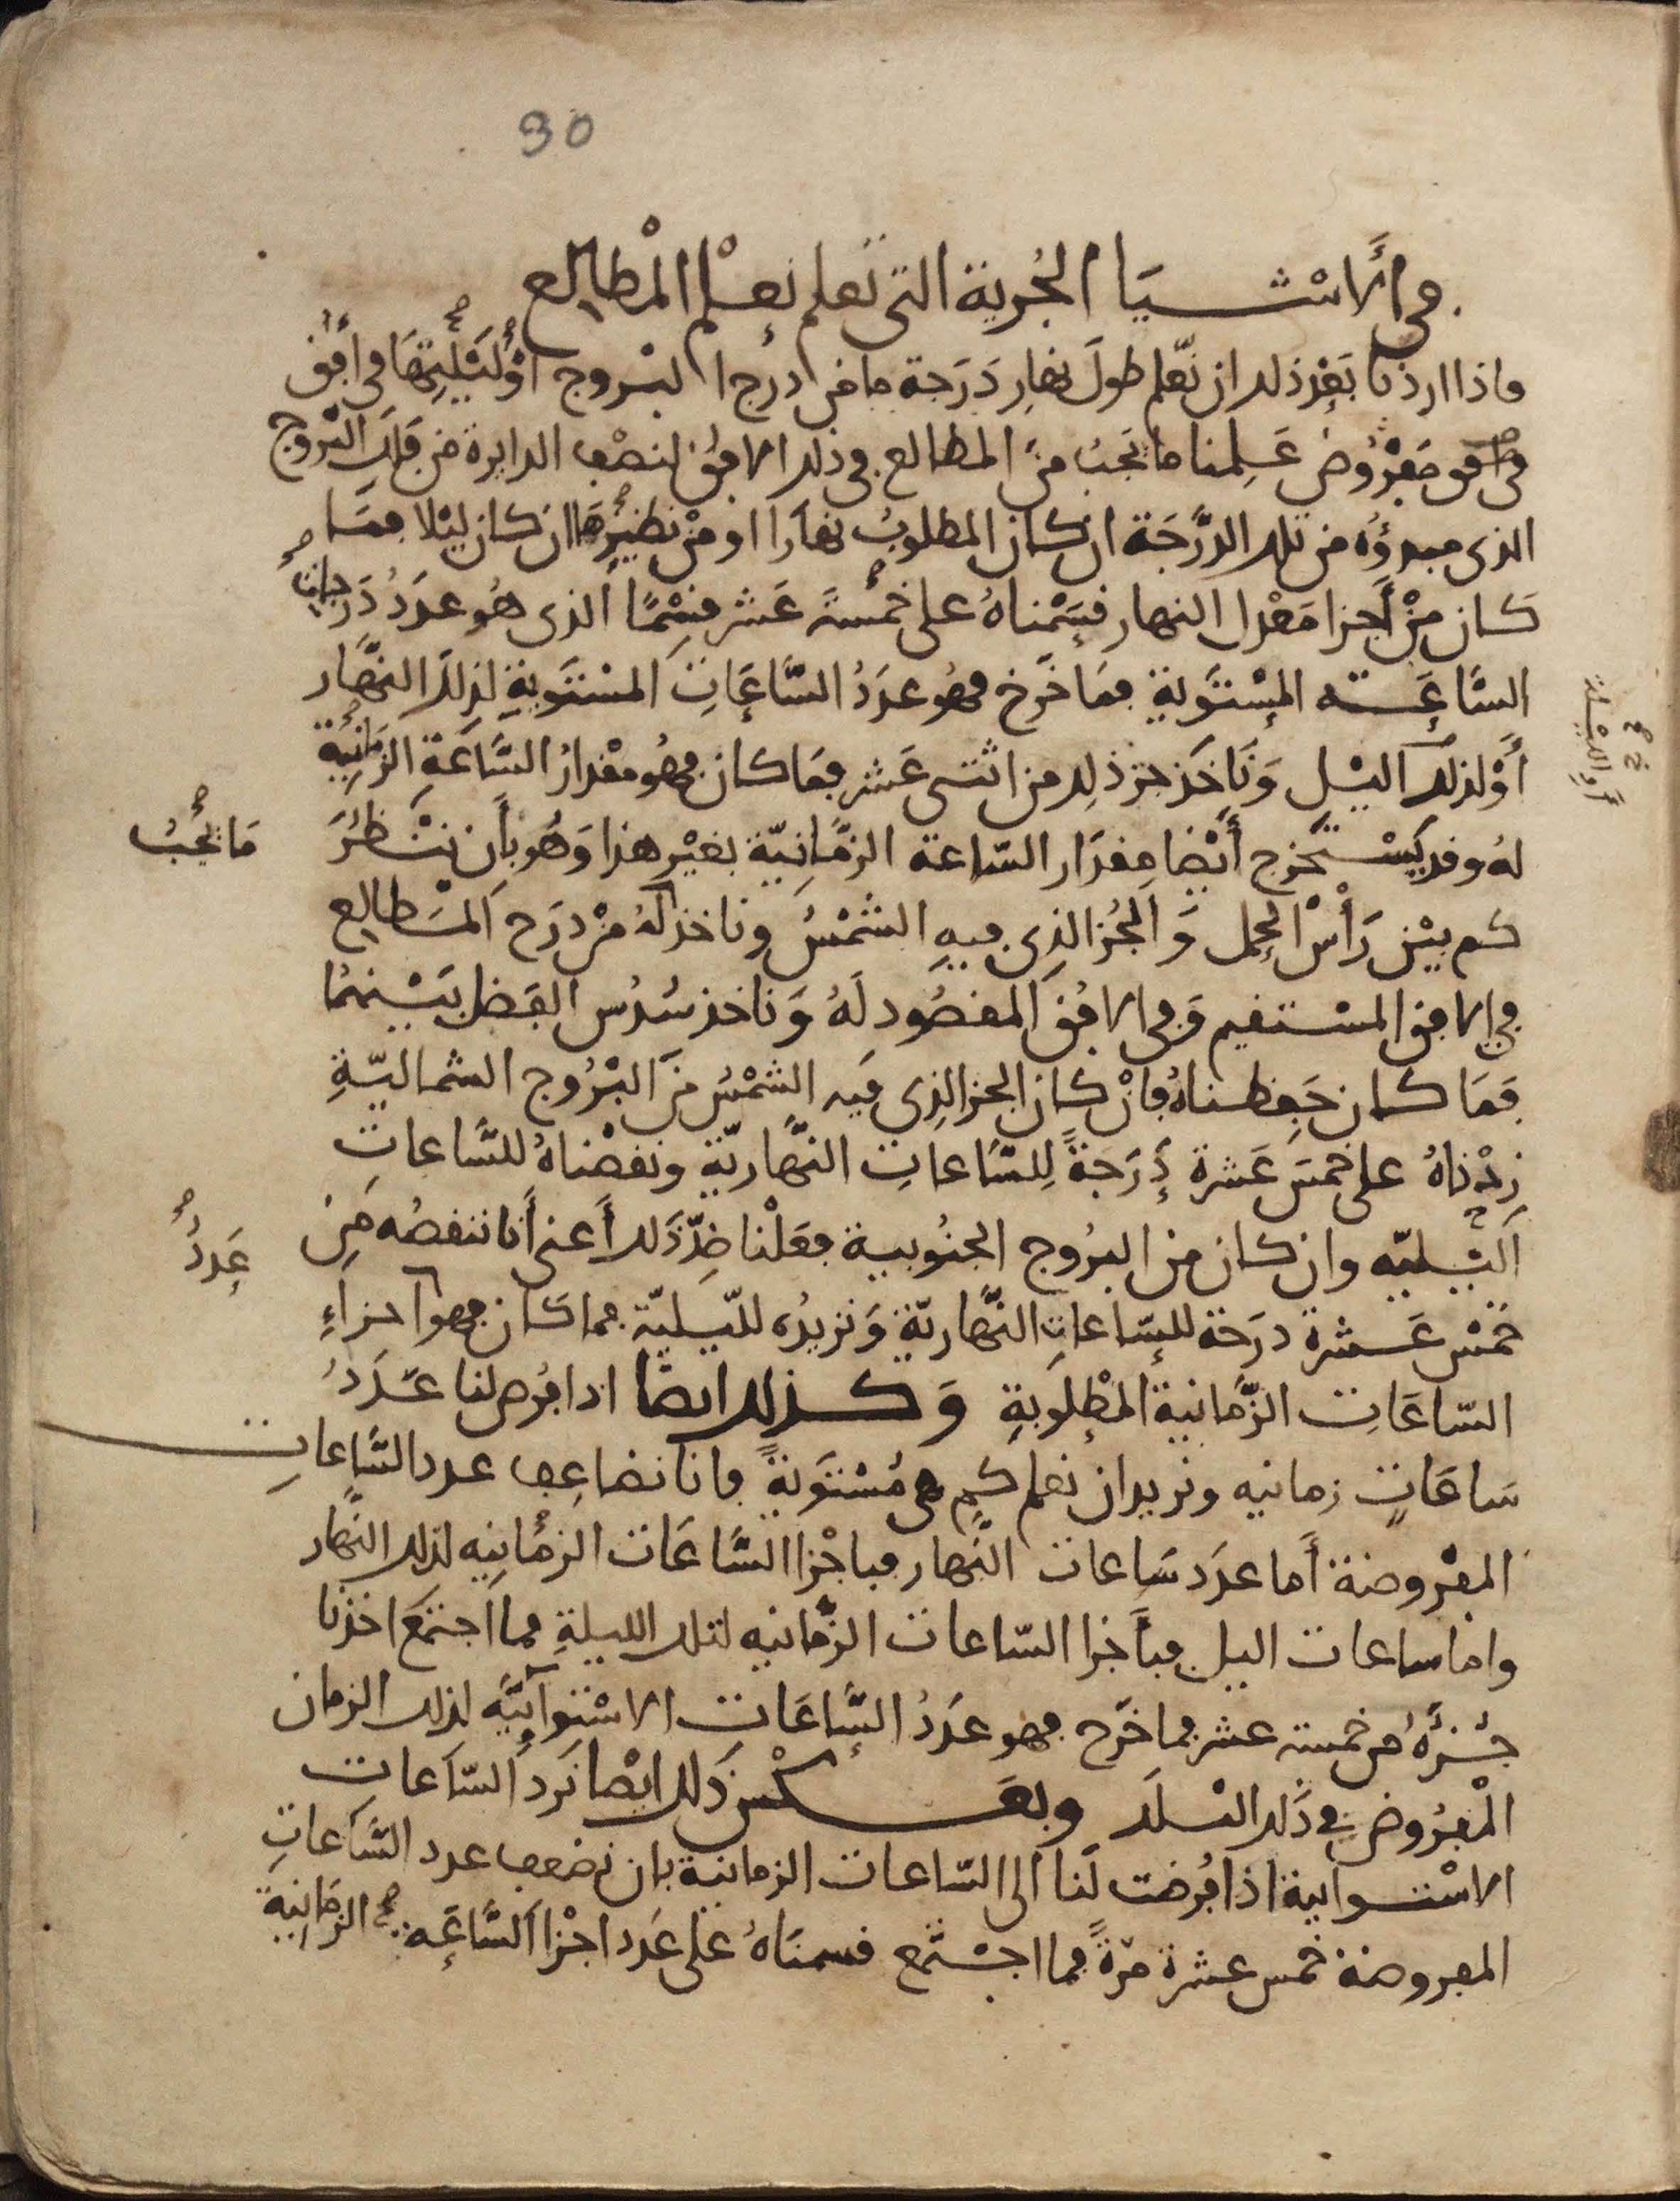 30
في الأشيا الجزية التي تعلم بعلم المطالع
فاذا اردنا بعد ذلك ان نعلم طول نهار درجة ما من درج البروج او ليلتها في أفق
مفروض علمنا ما يجب من المطالع في ذلك الافق لنصف الدايرة من فلك البروج
الذي مبدؤه من تلك الدرجة ان كان المطلوب نهارا او من نظيرها ان كان ليلا فما
كان من أجزا معدل النهار قسمناه على خمسة عشر قسما الذي هو عدد درجات
الساعة المستوية فما خرج فهو عدد الساعات المستوية لذلك النهار
أو لذلك اليل وناخذ جزء ذلك من اثنى عشر فما كان فهو مقدار الساعة الزمانية
أو الليلة
له وقد يستخرج أيضا مقدار الساعة الزمانية بغير هذا وهو بأن ننظر
ما يجب
كم بين رأس الحمل والجز الذي فيه الشمس وناخذ له من درج المطالع
في الافق المستقيم وفي الافق المقصود له وناخذ سدس الفضل بينهما
فما كان حفظناه فان كان الجز الذي فيه الشمس من البروج الشمالية
زدناه على خمس عشرة درجة للساعات النهارية ونقصناه للساعات
اليليه وان كان من البروج الجنوبية فعلنا ضد ذلك أعني أنا ننقصه من
عدد
خمس عشرة درجة للساعات النهارية ونزيده لليلية فما كان فهو اجزاء
الساعات الزمانية المطلوبة وكذلك ايضا اذا فرض لنا عدد
ساعات زمانيه ونريد ان نعلم كم هي مستوية فانا نضاعف عدد الساعات
المفروضة أما عدد ساعات النهار فباجزا الساعات الزمانيه لذلك النهار
واما ساعات اليل فبأجزا الساعات الزمانيه لتلك الليلة فما اجتمع اخذنا
جزءه من خمسة عشر فما خرج فهو عدد الساعات الاستوآئيه لذلك الزمان
المفروض في ذلك البلد وبعكس ذلك ايضا نرد الساعات
الاستوايية اذا فرضت لنا الى الساعات الزمانية بان نضعف عدد الساعات
المفروضة خمس عشرة مرة فما اجتمع قسمناه على عدد اجزا الساعه الزمانية